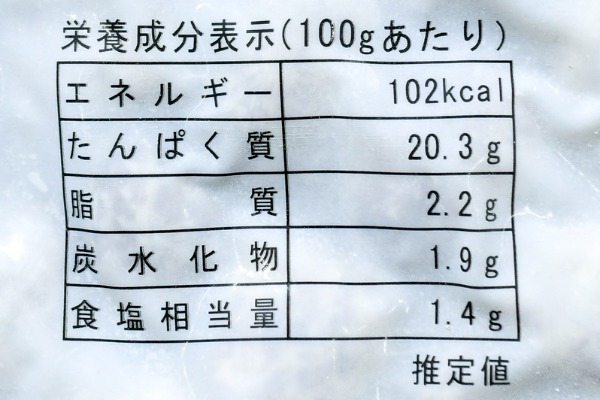 栄養成分表示(100gあたり)
エネルギー 102kcal
たんぱく質 20.3g
脂質 2.2g
炭水化物 1.9g
食塩相当量 1.4g
推定値